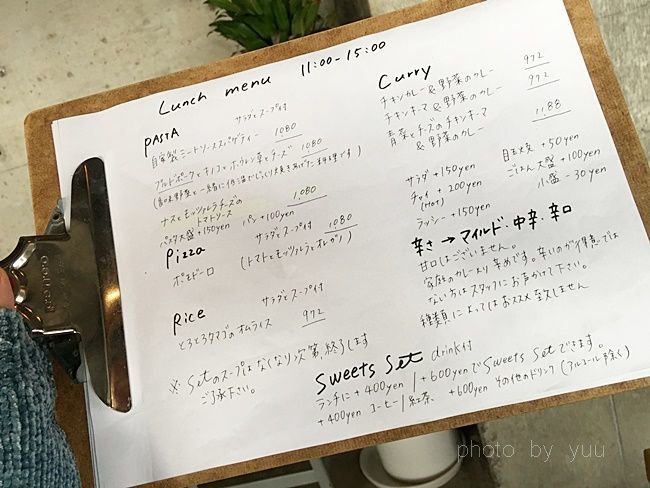 Lunch menu 11:00-15:00
PASTA サラダとスープ付
自家製ミートソーススパゲティー 1080
プルドポークとキノコとホウレン草とチーズ 1080
ナスとモッツァレラチーズの
トマトソース 1,080
パスタ大盛+150yen パン+100yen
Pizza サラダとスープ付 1080
ポモドーロ (トマトとモッツァレラとオレガノ)
Rice サラダとスープ付
とろとろタマゴのオムライス 972
※Setのスープはなくなり次第、終了します
ご了承下さい。
Curry
チキンカレー&野菜のカレー 972
チキンキーマ&野菜のカレー 972
青菜とチーズのチキンキーマ
&野菜のカレー 1,188
サラダ +150yen
チャイ +200yen
(Hot)
ラッシー +150yen
目玉焼 +50yen
ごはん大盛+100yen
小盛 -30yen
辛さ→マイルド・中辛・辛口
甘口はございません。
家庭のカレーより辛めです。辛いのが得意では
ない方はスタッフにお声がけて下さい。
種類によってはおススメ致しません
Sweets Set drink付
ランチに+400yen/+600yenでSweets Setできます。
+400yen コーヒー/紅茶 +600yen その他のドリンク(アルコール除く)
photo by yuu